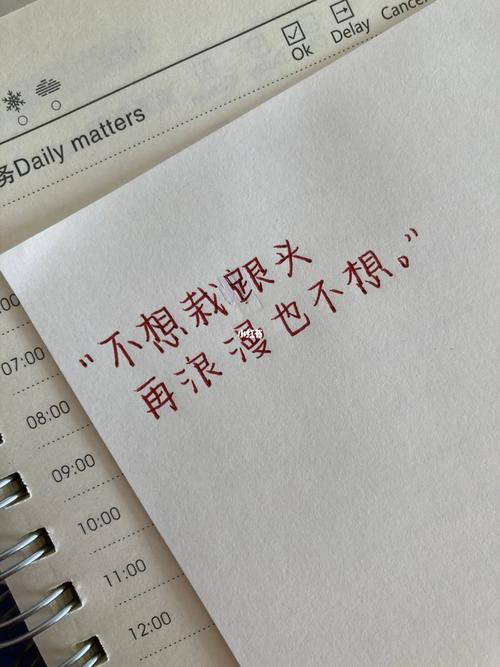 Ok
Delay
Cancel
务Daily matters
"不想栽跟头
再浪漫也不想。"
小红书
:00
07:00
08:00
09:00
10:00
11:00
12:00